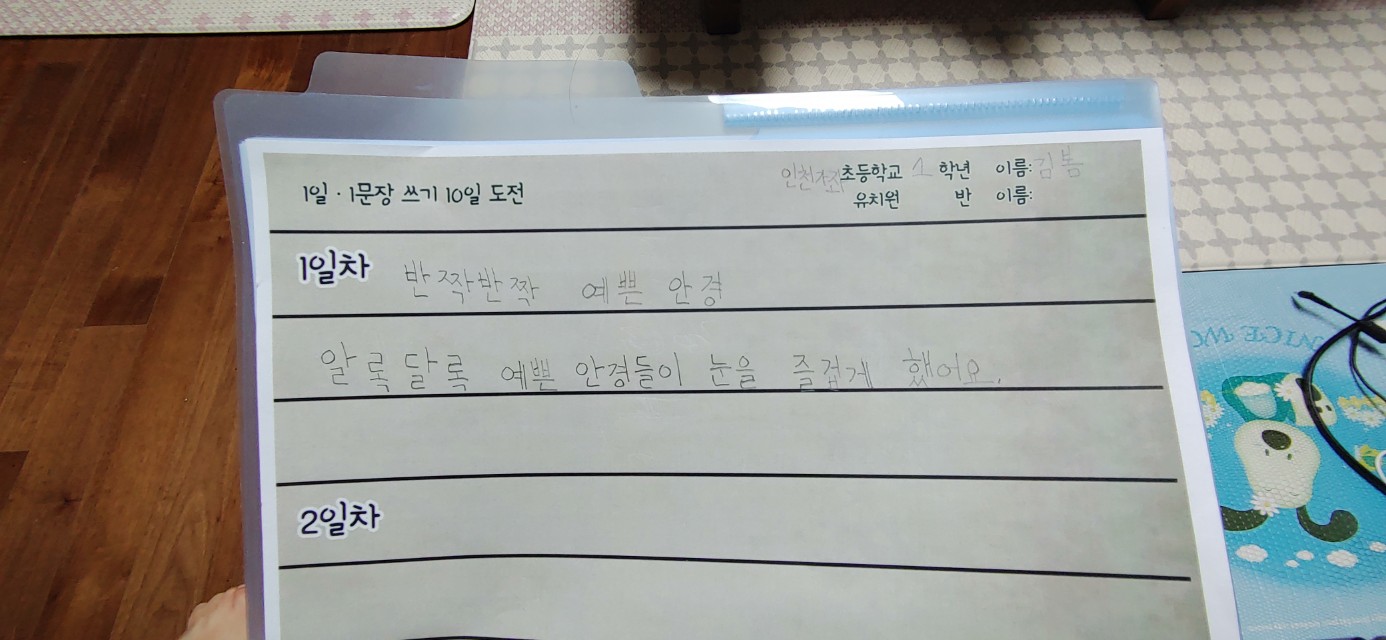 1일·1문장 쓰기 10일 도전
인천 초등학교 1 학년 이름: 김봄
유치원 반 이름:
1일차 반짝반짝 예쁜 안경
알록달록 예쁜 안경들이 눈을 즐겁게 했어요.
2일차